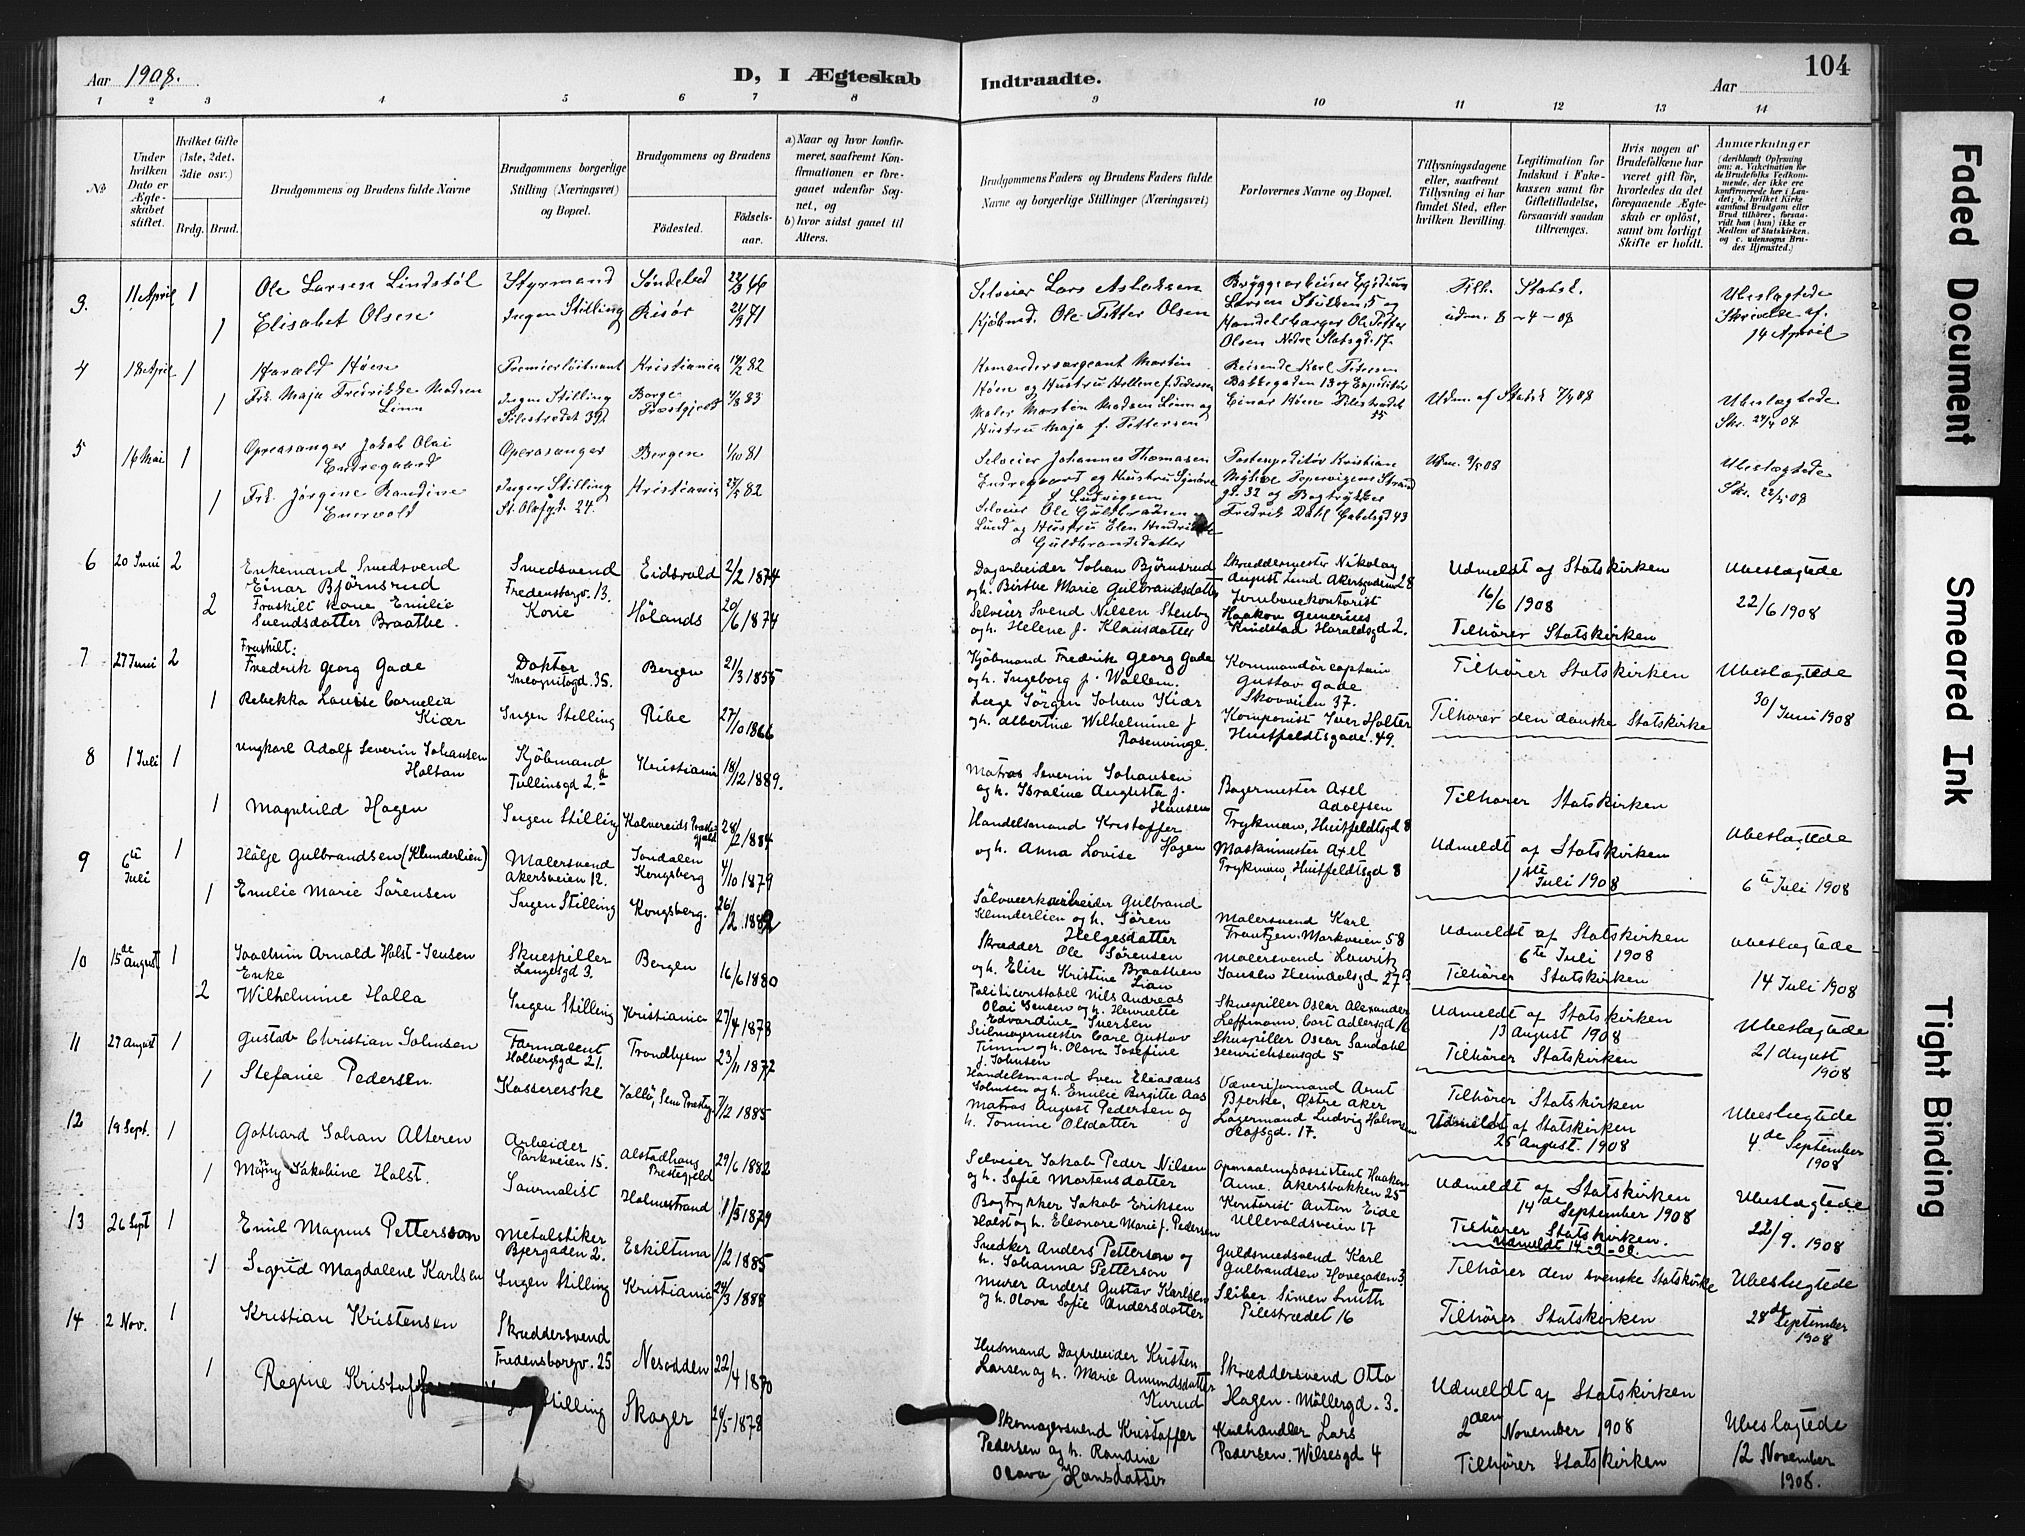 104
Aar 1908.
D, I Ægteskab
Indtraadte.
Aar
1 2 3 4 5 6 7 8 9 10 11 12 13 14
No
Under hvilken Dato er Ægteskabet stiftet.
Hvilket Gifte (1ste, 2det, 3die osv.)
Brdg. Brud.
Brudgommens og Brudens fulde Navne
Brudgommens borgerlige Stilling (Næringsvei) og Bopæl.
Brudgommens og Brudens
Fødested.
Fødselsaar.
a) Naar og hvor konfirmeret, saafremt Konfirmationen er foregaaet udenfor Sognet, og
b) hvor sidst gaaet til Alters.
Brudgommens Faders og Brudens Faders fulde Navne og borgerlige Stillinger (Næringsvei)
Forlovernes Navne og Bopæl.
Tillysningsdagene eller, saafremt Tillysning ei har fundet Sted, efter hvilken Bevilling.
Legitimation for Indskud i Enkekassen samt for Giftetilladelse, forsaavidt saadan tiltrænges.
Hvis nogen af Brudefolkene har været gift før, hvorledes da det foregaaende Ægteskab er opløst, samt om lovligt Skifte er holdt.
Anmærkninger (deriblandt Oplysning om: a. Vakcination for de Brudefolks Vedkommende, der ikke ere konfirmerede her i Landet; b. hvilket Kirkesamfund Brudgom eller Brud tilhører, forsaavidt han (hun) ikke er Medlem af Statskirken, og c. udensogns Brudes Hjemsted.)
3. 11 April 1 Ole Larsen Lindstøl Styrmand Søndeled 22/3 66
1 Elisabet Olsen Ingen Stilling Risør 21/9 71
Selveier Lars Aslaksen
Kjøbmd. Ole Petter Olsen
Larsen Stolken 5 og
Handelsborger Ole Petter
Olsen Nedre Slotsgd. 17.
Tilh. Statsk.
udm. 8-4-08
Ubeslægtede
Skrivelse af
14 April
4 18 April 1 Harald Høen Premierløitnant Kristiania 82
1 Frk. Maja Fredrikke Madsen
Linn
Ingen Stilling
Pilestrædet 39
Borge
Præstgjeld
83
Høen og Hustru Helene f. Pedersen
Maler Morten Madsen Linn og
Hustru Maja f. Pettersen
Reisende Karl Petersen
Bakkegaden 13 og Expeditør
Einar Høen Pilestrædet
55
Udm. af Statsk 7/4 08
Ubeslægtede
Skr. 24/4 08
5 16 Mai 1 Operasanger Jakob Olai
Endregaard
Operasanger Bergen 1/10 81
1 Frk. Jørgine Randine
Enervold
Ingen Stilling
St. Olafsgd. 24.
Kristiania 82
Selveier Johannes Thomasen
Endregaard og Hustru Synøve
f Ludvigsen
Selveier Ole Guldbrandsen
Lund og Hustru Elen Hendrikke
f Guldbrandsdatter
Postexpeditør Kristian
gt. 32 og Bogtrykker
Fredrik Dahl Gabelsgd 43
Udm. 9/5 08
Ubeslægtede
Skr. 22/5 08
6 20 Juni 2 Enkemand Smedsvend
Einar Bjørnsrud
Smedsvend
Fredensborgv. 13.
Eidsvold 2/2 1874
2 Fraskilt kone Emilie
Svendsdatter Braathe.
Kone Hølands 20/6 1874
Dagarbeider Johan Bjørnsrud
og h. Birthe Marie Gulbrandsdatter
Selveier Svend Nilsen Stenby
og h. Helene f. Klausdatter
Skræddermester Nikolay
August Lund Akersgaden 28
Jernbanekontorist
Haakon
Knudstad Haraldsgd 2.
Udmeldt af Statskirken
16/6 1908
Tilhører Statskirken
Ubeslægtede
22/6 1908
7 27 Juni 2 Fraskilt:
Fredrik Georg Gade
Doktor
Incognitogd. 35.
Bergen 21/3 1855
1 Rebekka Louise Cornelia
Kiær
Ingen Stilling Ribe 27/10 1866
Kjøbmand Fredrik Georg Gade
og h. Ingeborg f. Wallem.
Læge Jörgen Johan Kiær
og h. Albertine Wilhelmine f
Rosenvinge.
Kommandørcaptain
Gustav Gade
Skovveien 37.
Komponist Iver Holter
Huitfeldtsgade. 49.
Tilhører Statskirken
Tilhører den danske Statskirke
Ubeslægtede
30/ Juni 1908
8 1 Juli 1 Ungkarl Adolf Severin Johansen
Holtan
Kjøbmand
Tullinsgd 2.b
Kristiania 18/12 1889.
1 Magnhild Hagen Ingen Stilling Kolvereids Præstegjæld 28/2 1884
Matros Severin Johansen
og h. Israline Augusta f.
Hansen
Handelsmand Kristoffer
og h. Anna Lovise Hagen
Bagermester Axel
Adolfsen
Trykman, Huitfeldtsgd 8
Maskinmester Axel
Trykman, Huitfeldtsgd 8
Tilhører Statskirken
Udmeldt af Statskirken
1ste Juli 1908
Ubeslægtede
6te Juli 1908
9 6te Juli 1 Hälje Gulbrandsen (Klunderlien)
Malersvend
Akersveien 12.
Jondalen
Kongsberg
4/10 1879
1 Emilie Marie Sørensen Ingen Stilling Kongsberg. 26/2 1882
Sölvverksarbeider Gulbrand
Klunderlien og h. Sören
Helgesdatter
Skrædder Ole Sørensen
og h. Elise Kristine Braathen
Malersvend Karl
Frantzen. Markveien 58
Malersvend Lauritz
Jansen Heimdalsgd 27
Udmeldt af Statskirken
6te Juli 1908
Tilhører Statskirken
Ubeslægtede
14 Juli 1908
10 15de August 1 Joachim Arnold Holst-Jensen
Skuespiller
Langesgd 3.
Bergen 16/6 1880
2 Enke
Wilhelmine Halla
Ingen Stilling Kristiania 27/4 1878
Politiconstabel Nils Andreas
Olai Jensen og h. Henriette
Edvardine Iversen
Seilmagermester Carl Gustav
Timm og h. Olava Josefine
f. Johnsen
Skuespiller Oscar Alexander
Leffmann, Carl Adlersgd 16
Skuespiller Oscar Sandahl
Henrichsensgd 5
Udmeldt af Statskirken
13 August 1908
Tilhører Statskirken
Ubeslægtede
21 August
1908
11 27 August 1 Gustav Christian Johnsen
Farmaceut
Holbergsgd 21.
Trondhjem 23/11 1877
1 Stefanie Pedersen. Kassererske Vallö, Sem Præsteg. 7/2 1885
Handelsmand Sven Eliasæus
Johnsen og h. Emilie Birgitte Aas
Matros August Pedersen og
h. Tomine Olsdatter
Væveriformand Arnt
Bjerke, Østre Aker
Lagermand Ludvig Halvorsen
Olafsgd. 17.
Tilhører Statskirken
Udmeldt af Statskirken
25 August. 1908
Ubeslægtede
4de September
1908
12 19 Sept. 1 Gothard Johan Alteren
Arbeider
Parkveien 15.
Alstadhaug
Prestegjeld
29/6 1882
1 Mäny Jakobine Holst. Journalist Holmestrand 1/5 1879
Selveier Jakob Peder Nilsen
og h. Sofie Mortensdatter
Bogtrykker Jakob Eriksen
Holst og h. Eleonore Marie f. Pedersen
Opmaalingsassistent Haakon
Anne. Akersbakken 25
Kontorist Anton Eide
Ullevaldsveien 17
Udmeldt af Statskirken
14de September 1908
Tilhører Statskirken.
Udmeldt 14-9-08.
Ubeslægtede
22/9. 1908
13 26 Sept 1 Emil Magnus Pettersson
Metalstiker
Bjergaden 2.
Eskiltuna 1/2 1885
1 Sigrid Magdalene Karlsen Ingen Stilling Kristiania 24/3 1888
Snedker Anders Petterson og
h. Johanna Petterson
Murer Anders Gustav Karlsen
og h. Olava Sofie Andersdatter
Guldsmedsvend Karl
Gulbrandsen Hovegaden 3.
Sliber Simen Smith
Pilestrædet 16
Tilhører den svenske Statskirke
Tilhører Statskirken
Ubeslægtede
28de September
1908
14 2 Nov. 1 Kristian Kristensen
Skræddersvend
Fredensborgv. 25
Nesodden 22/4 1870
1 Regine Stilling Skoger 24/5 1878
Husmand Dagarbeider Kristen
Larsen og h. Marie Amundsdatter
Kurud
Skomagersvend Kristoffer
Pedersen og h. Randine
Olava Hansdatter
Skræddersvend Otto
Hagen. Möllergd. 3.
Kulhandler Lars
Pedersen. Wilsesgd 4
Udmeldt af Statskirken
2den November 1908
Tilhører Statskirken
Ubeslægtede
12 November
1908.
Faded Document
Smeared Ink
Tight Binding